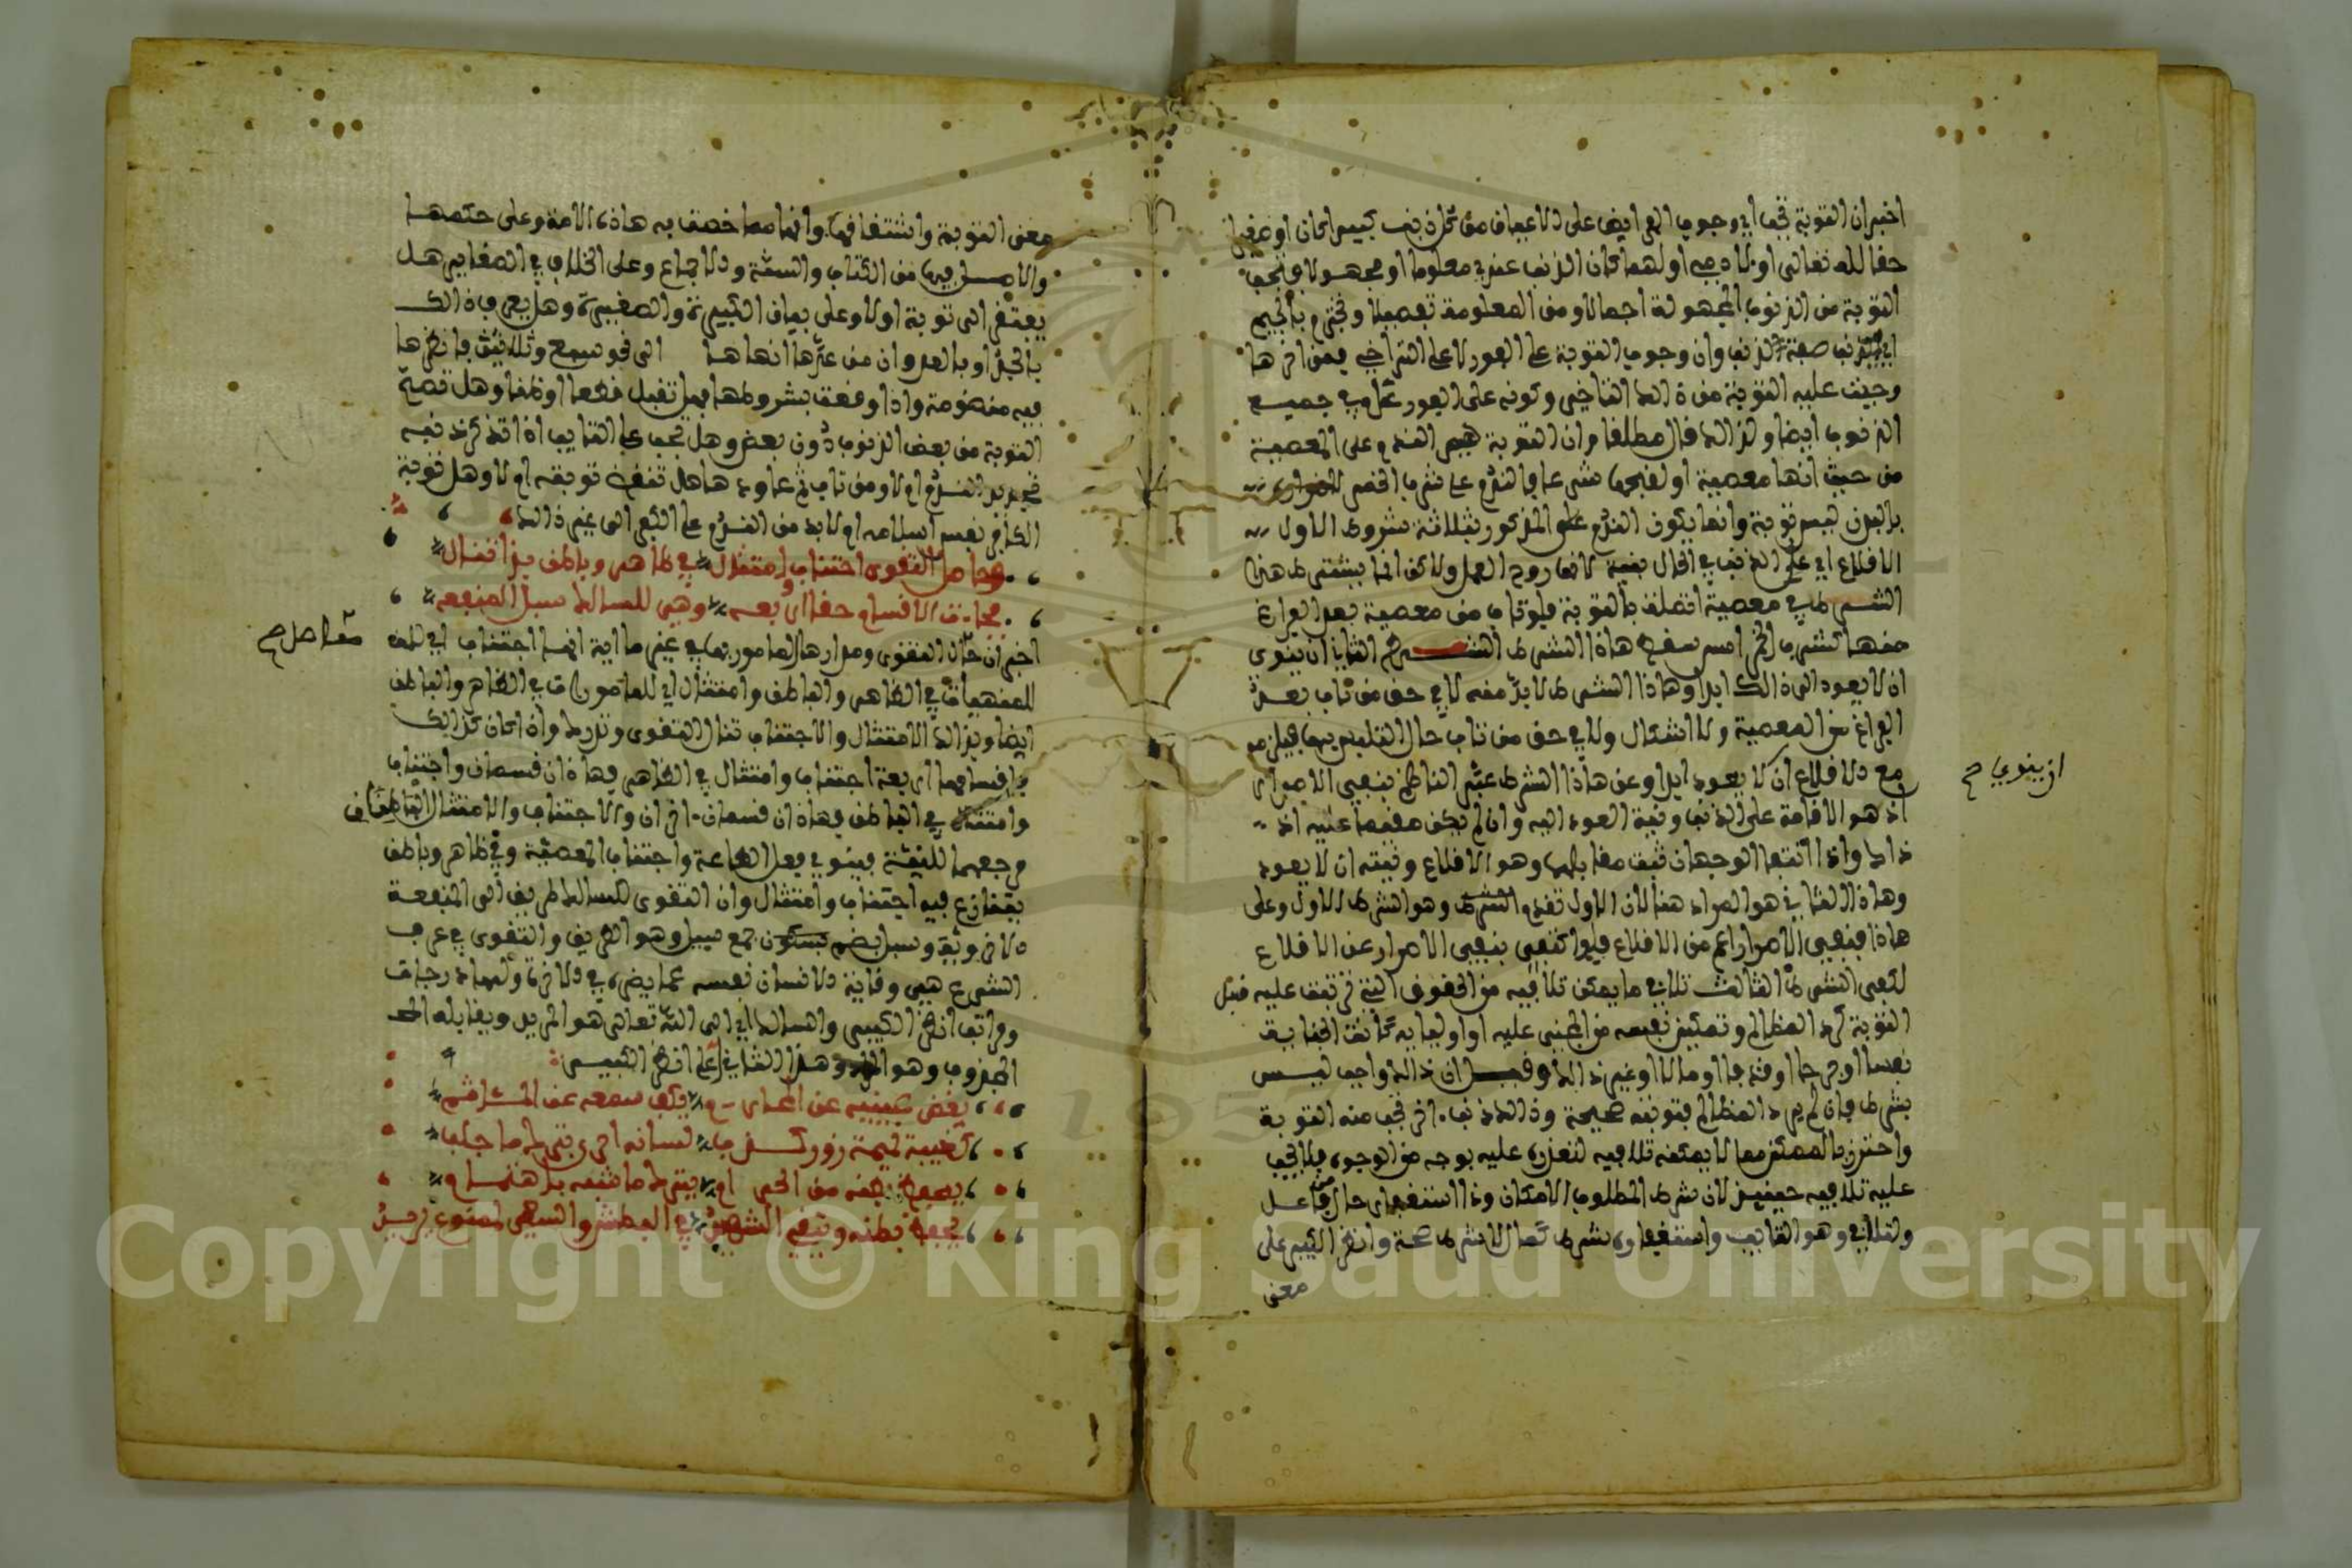 اخبر ان التوبة تجب اي وجوب الفرايض على الاعيان من كل ذنب كبير كان او صغير
حقا لله تعالى او لادمي او لهما كان الذنب عنده معلوما او مجهولا وتجب
التوبة من الذنوب المجهولة اجمالا ومن المعلومة تفصيلا وتجترم بالجيم
اي صفة الذنب وان وجوب التوبة على الفور لا على التراخي فمن اخرها
وجبت عليه التوبة من ذالك التاخير وكونه على الفور عام في جميع
الذنوب ايضا ولذالك قال مطلقا وان التوبة هي الندم على المعصية
من حيث انها معصية او لقبحها شرعا فالندم على شرب الخمر
بالبدن ليس توبة وانما يكون الندم على المذكور بثلاثة شروط الاول
الاقلاع اي على الذنب في الحال بنية لانها روح العمل ولاكن انما يشترط هذا
الشرط في معصية اتصلت بالتوبة فلو تاب من معصية بعد الفراغ
منها كشرب الخمر امس سقط هاذا الشرط الثاني ان ينوي
ان لا يعود الى ذالك ابدا وهاذا الشرط لا بد منه لا في حق من تاب بعد
الفراغ من المعصية ولا اشكال ولا في حق من تاب حال التلبس بها فيلزم
مع الاقلاع ان لا يعود ابدا وعن هاذا الشرط عبر الناظم بنفي الاصرار
ان ينوي صح
اذ هو الاقامة على الذنب ونية العود اليه وان لم يكن مقيما عليه اذ
ذاك واذا انتفا الوجهان ثبت مقابلهما وهو الاقلاع ونيته ان لا يعود
وهاذا الثاني هو المراد هنا لان الاول تقدم وهو الشرط الاول وعلى
هاذا فنفي الاصرار اعم من الاقلاع فلو اكتفى بنفي الاصرار عن الاقلاع
لكفى الشرط الثالث تلافي ما يمكن تلافيه من الحقوق التي ترتبت عليه قبل
التوبة كرد المظالم وتمكين نفسه من المجني عليه او اوليايه كانت الجناية
نفسا او جرحا او قذفا او مالا او غير ذالك وقيل ان ذالك واجب ليس
بشرط فان لم يرد المظالم فتوبته صحيحة وذالك ذنب اخر تجب منه التوبة
واحترز بالممكن مما لا يمكنه تلافيه لتعذره عليه بوجه من الوجوه فلا يجب
عليه تلافيه حينيذ لان شرط المطلوب الامكان وذا استغفار حال من فاعل
ولتلافي وهو التايب واستغفاره شرط كمال لا شرط صحة وانظر الكبير على
معنى
معنى التوبة واشتقاقها وانها مما خصت به هاذه الامة وعلى حكمها
والاصل فيها من الكتاب والسنة والاجماع وعلى الخلاف في الصغاير هل
يفتقر الى توبة اولا وعلى بيان الكبيرة والصغيرة وهل يعرف ذالك
بالحد او بالعد وان من عدها انهاها الى نحو سبع وثلاثين فانظرها
فيه منظومة واذا وقعت بشروطها فهل تقبل قطعا او ظنا وهل تصح
التوبة من بعض الذنوب دون بعض وهل يجب على التايب اذا تذكر ذنبه
تجديد الندم ام لا ومن تاب ثم عاود هل تنتقض توبته ام لا وهل توبة
الكافر نفس اسلامه ام لا بد من الندم على الكفر الى غير ذالك
وحاصل التقوى اجتناب وامتثال في ظاهر وباطن بذا تنال
فجاءت الاقسام حقا اربعه وهي للسالك سبل المنفعه
اخبر ان حاصل التقوى ومدارها المامور بها في غير ما اية انها اجتناب اي للمن
حاصل صح
للمنهيات في الظاهر والباطن وامتثال اي للمامورات في الظاهر والباطن
ايضا وبذالك الامتثال والاجتناب تنال التقوى وتدرك واذا كان كذالك
فاقسامها اربعة اجتناب وامتثال في الظاهر فهاذان قسمان واجتناب
وامتثال في الباطن فهاذان قسمان اخران والاجتناب والامتثال الباطنان
مرجعهما للنية فينوي فعل الطاعة واجتناب المعصية وفي ظاهر وباطن
يتنازع فيه اجتناب وامتثال وان التقوى للسالك طريق الى المنفعة
الاخروية وسبل بضم بسكون جمع سبيل وهو الطريق والتقوى في عرف
الشرع هي وقاية الانسان نفسه عما يضره في الاخرة ولها درجات
ومراتب انظر الكبير والسالك اي الى الله تعالى هو المريد ويقابله
المجذوب وهو المراد وهذا الثاني اعلى انظر الكبير
يغض عينيه عن المحارم يكف سمعه عن المئاثم
كغيبة نميمة زور كذب لسانه احرى بترك ما جلب
يحفظ بطنه من الحرام يترك ما شبه باهتمام
يحفظ فرجه ويتقي الشهيد في البطش والسعي لممنوع يريد